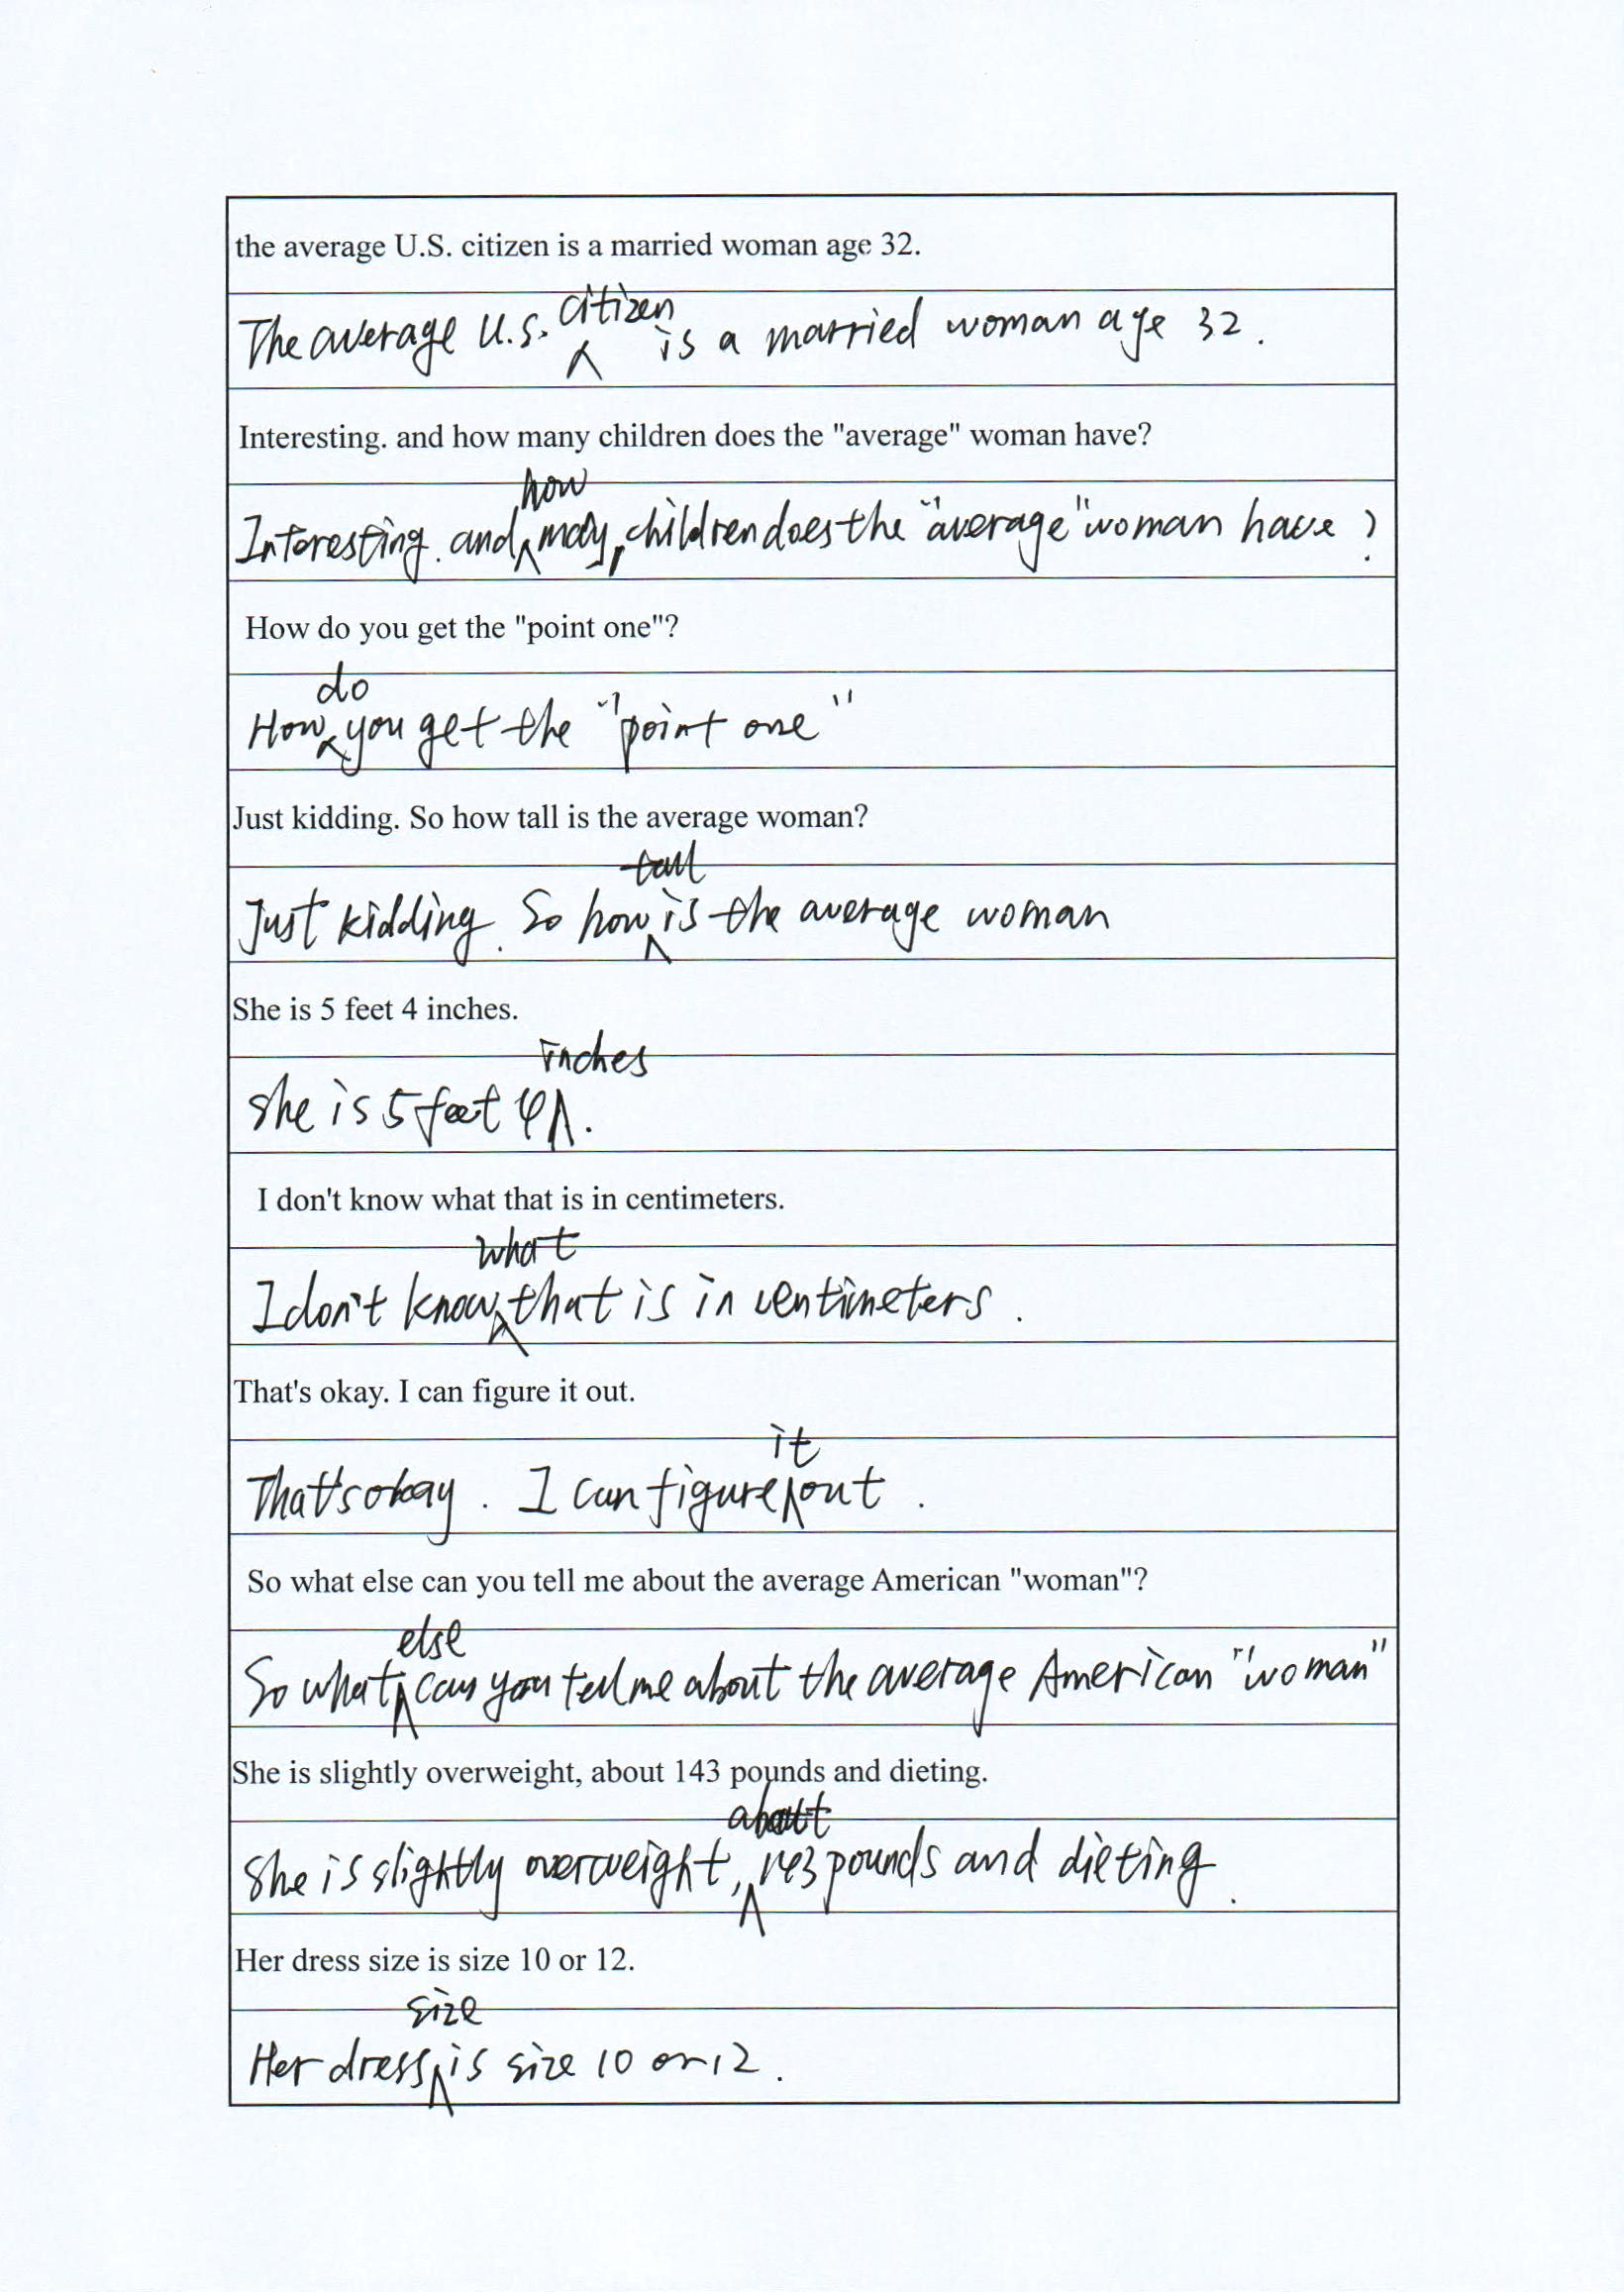 the average U.S. citizen is a married woman age 32.
The average U.S. citizen is a married woman age 32.
Interesting. and how many children does the "average" woman have?
Interesting. and how many children does the "average" woman have?
How do you get the "point one"?
How do you get the "point one"
Just kidding. So how tall is the average woman?
Just kidding. So how tall is the average woman
She is 5 feet 4 inches.
She is 5 feet 4 inches.
I don't know what that is in centimeters.
I don't know what that is in centimeters.
That's okay. I can figure it out.
That's okay. I can figure it out.
So what else can you tell me about the average American "woman"?
So what else can you tell me about the average American "woman"
She is slightly overweight, about 143 pounds and dieting.
She is slightly overweight, about 143 pounds and dieting.
Her dress size is size 10 or 12.
Her dress size is size 10 or 12.